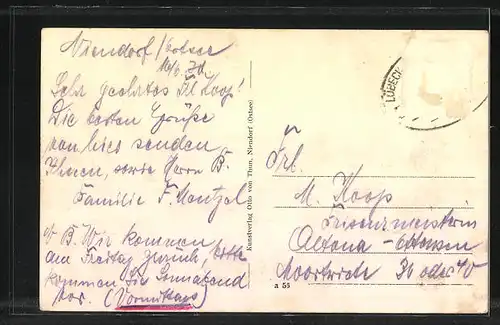 Niendorf/Ostsee
Sehr geehrtes Frl. Koop!
Die besten Grüße
von hier senden
Ihnen, sowie Herrn B.
Familie F. Mentzel
N B. Wir kommen
am Freitag zurück, bitte
kommen Sie Sonnabend
vor. (Vormittags)
Kunstverlag Otto von Thun, Niendorf (Ostsee)
LÜBECK
Frl.
M. Koop
Friseurmeisterin
Altona-Ottensen
36 oder 40
a 55